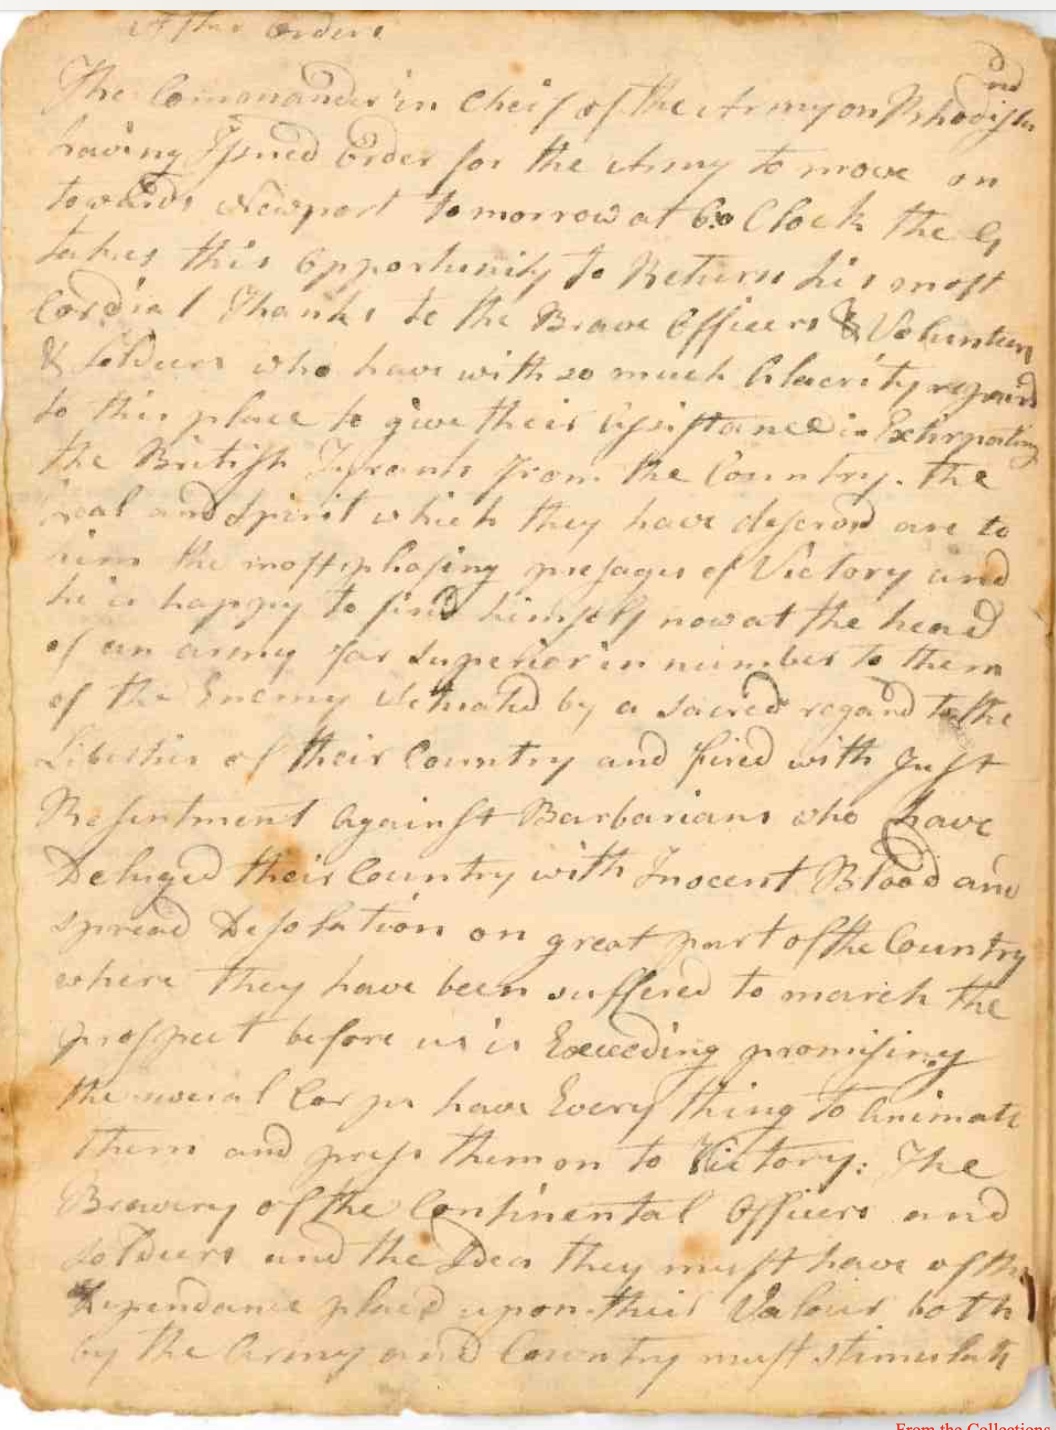 After Orders
The Comonander in Cheif of the Army on Rhodisl
nd
having Issued Order for the Army to move on
towards Newport tomorrow at 6 o Clock the G
takes this Opportunity to Return his most
Cordial Thanks to the Brave Officers & Volunteers
& Soldiers who have with so much Alacrity repaird
to this place to give their Assistance in Extirpating
the British Tyrants from the Country. the
Zeal and Spirit which they have are to
him the most pleasing presages of Victory and
he is happy to find himself now at the head
of an army far superior in number to them
of the Enemy Actuated by a sacred regard to the
Liberties of their Country and fired with Just
Resentment Against Barbarians who have
Deluged their Country with Inocent Blood and
spread Desolation on great part of the Country
where they have been suffered to march the
prospect before us is Exceeding promising
the several Corps have Every thing to Animate
them and press them on to Victory: The
Bravery of the Continental Officers and
Soldiers and the Idea they must have of the
Dependance placed upon their Valour both
by the Army and Country must stimulate
From the Collections